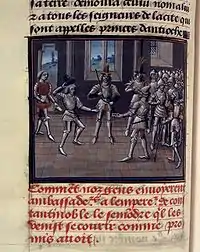 a tous les seigneurs de la cite qui
sont appelles princes dantioche
Comment noz gens envoyerent
ambassade a lempere de con
stantinoble le semondre qil les
venist secourir comme pro
mis avoit